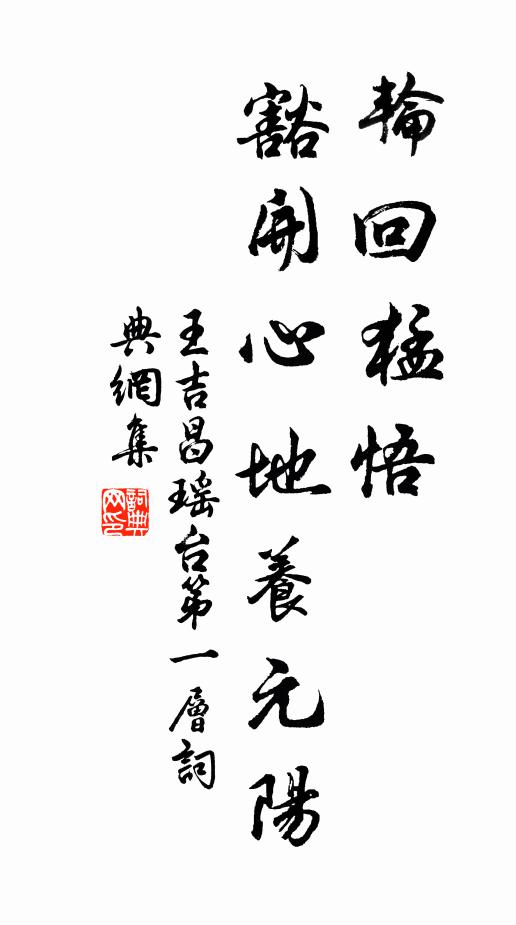 輪回猛悟
豁開心地養元陽
王吉昌瑶台第一層詞
典網集
詞典网印